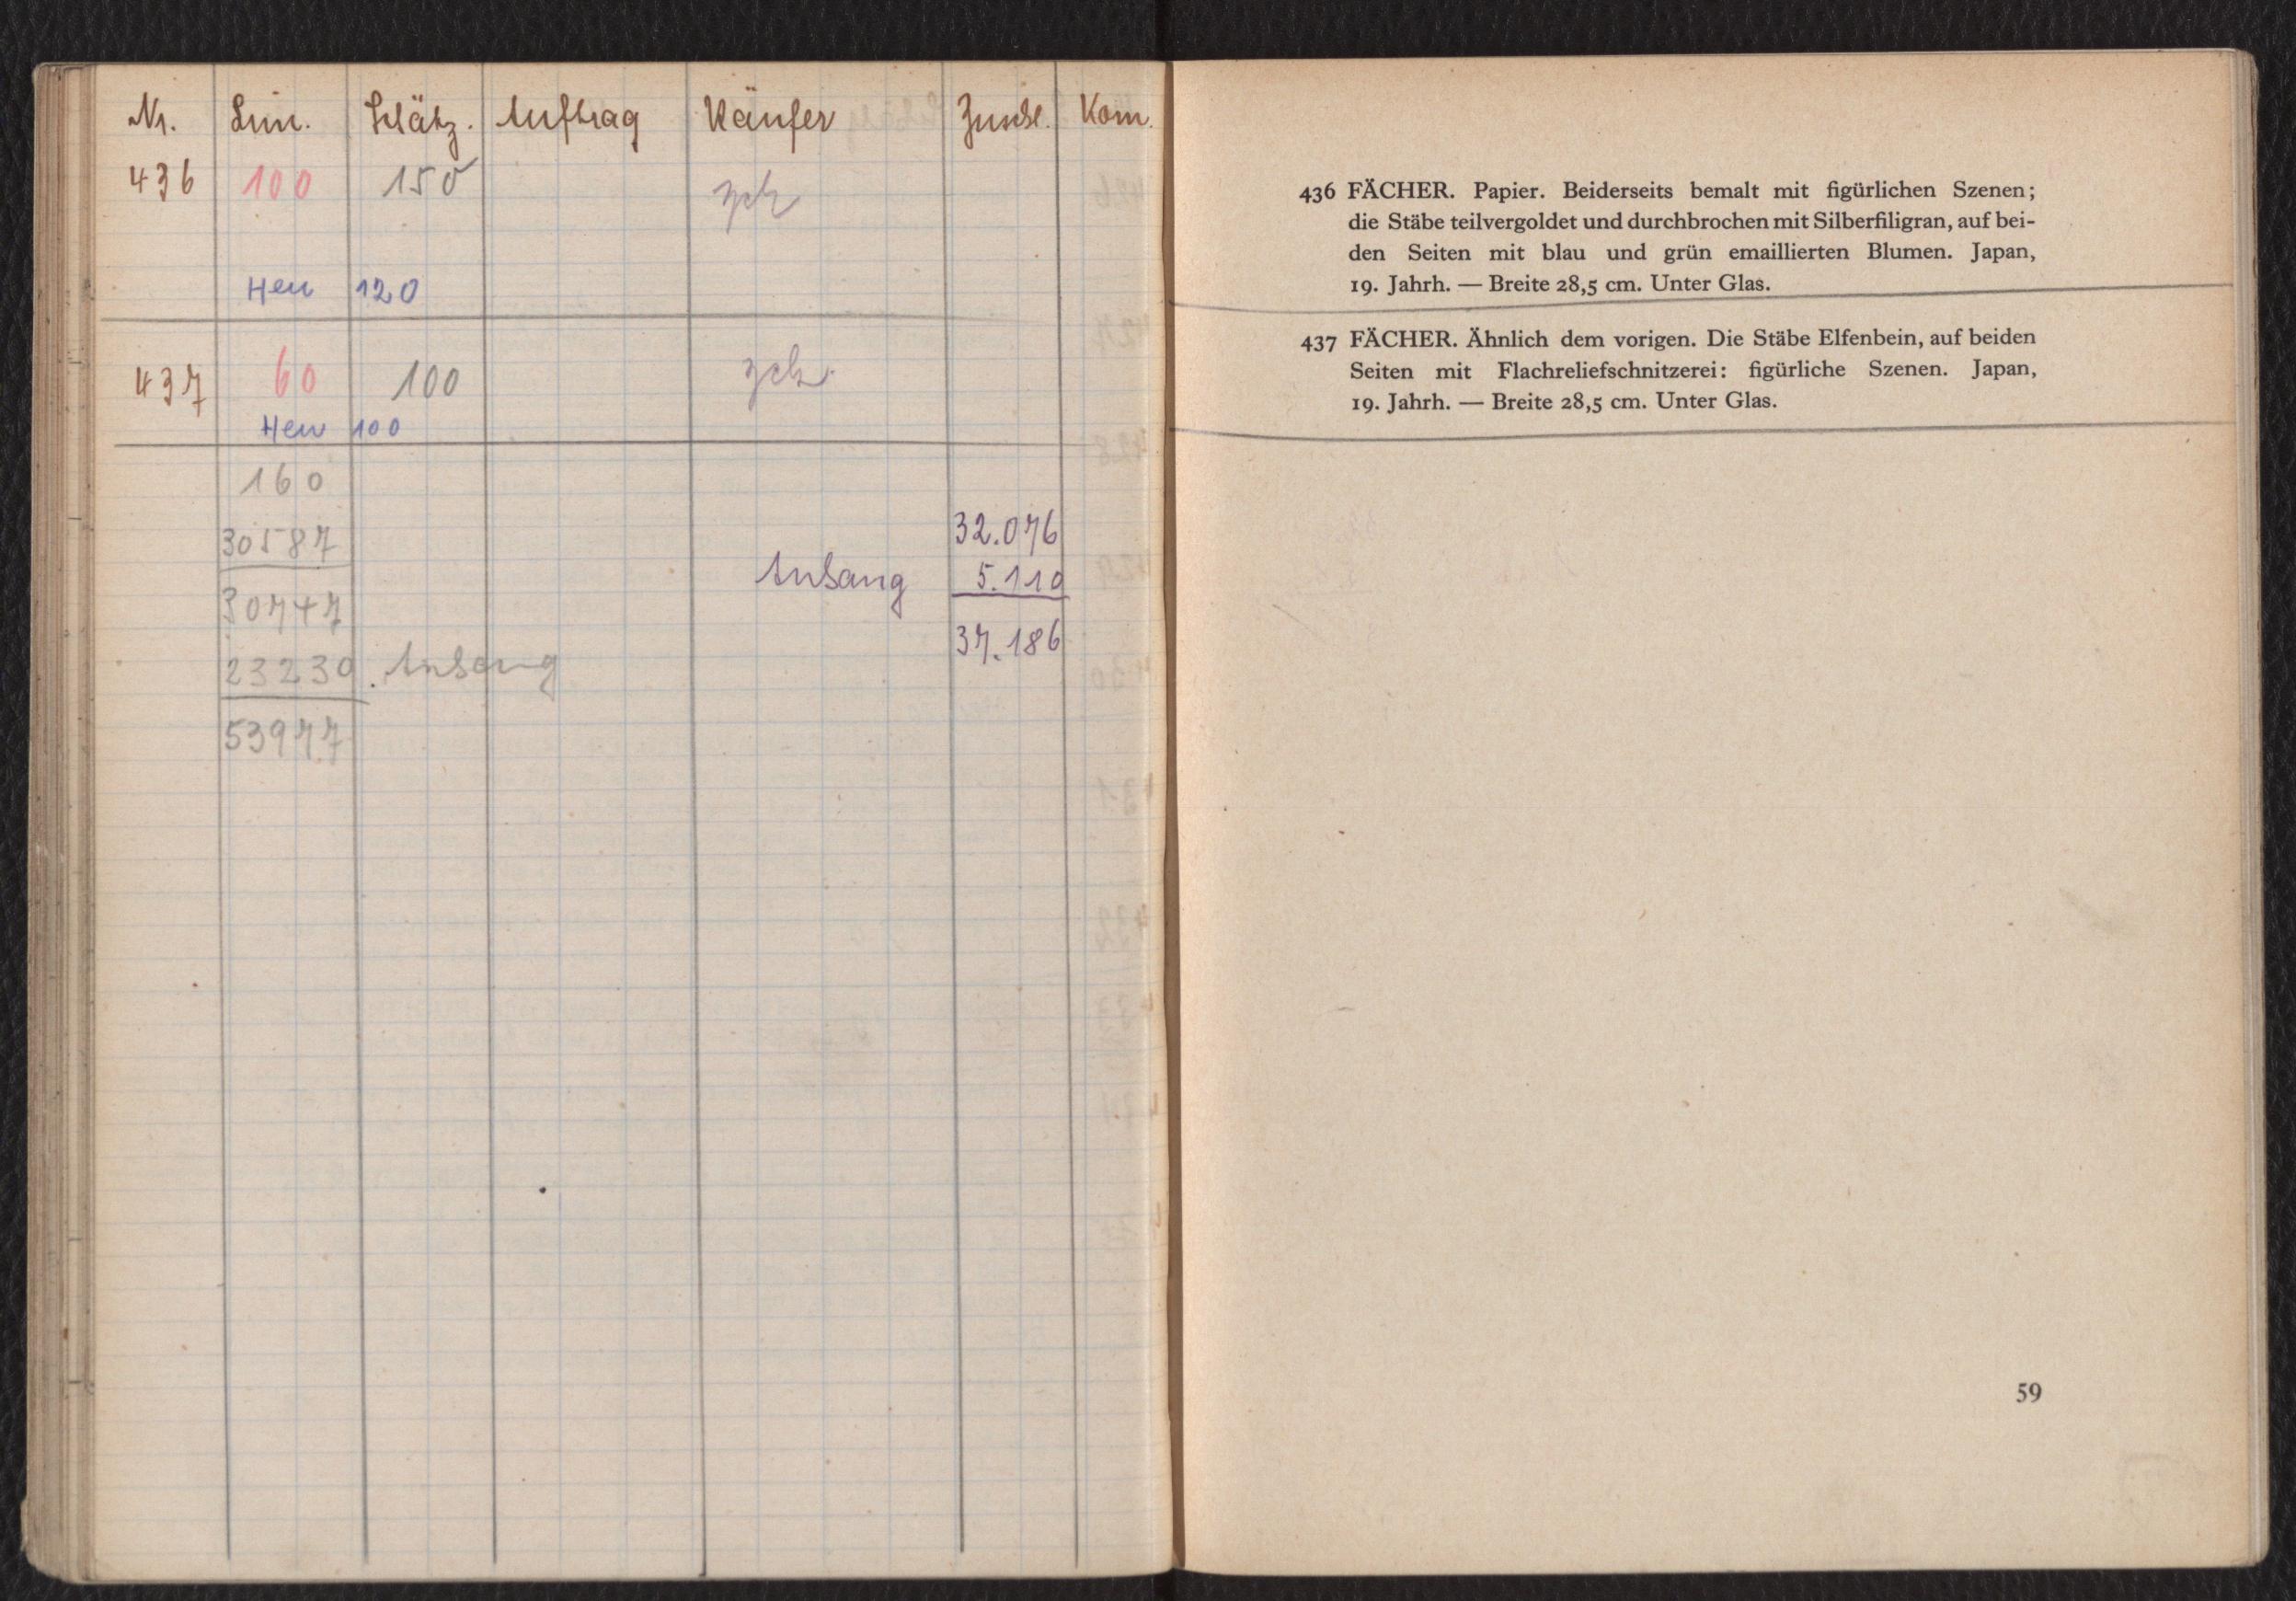 Nr. Lim. Schätz. Auftrag Käufer Zuschl. Kom.
436 100 150 zck
Hen 120
437 60 100 zck.
Hen 100
160
30587
30747
23230. Anhang
53977
32.076
Anhang 5.110
37.186
436 FÄCHER. Papier. Beiderseits bemalt mit figürlichen Szenen;
die Stäbe teilvergoldet und durchbrochen mit Silberfiligran, auf bei-
den Seiten mit blau und grün emaillierten Blumen. Japan,
19. Jahrh. — Breite 28,5 cm. Unter Glas.
437 FÄCHER. Ähnlich dem vorigen. Die Stäbe Elfenbein, auf beiden
Seiten mit Flachreliefschnitzerei: figürliche Szenen. Japan,
19. Jahrh. — Breite 28,5 cm. Unter Glas.
59